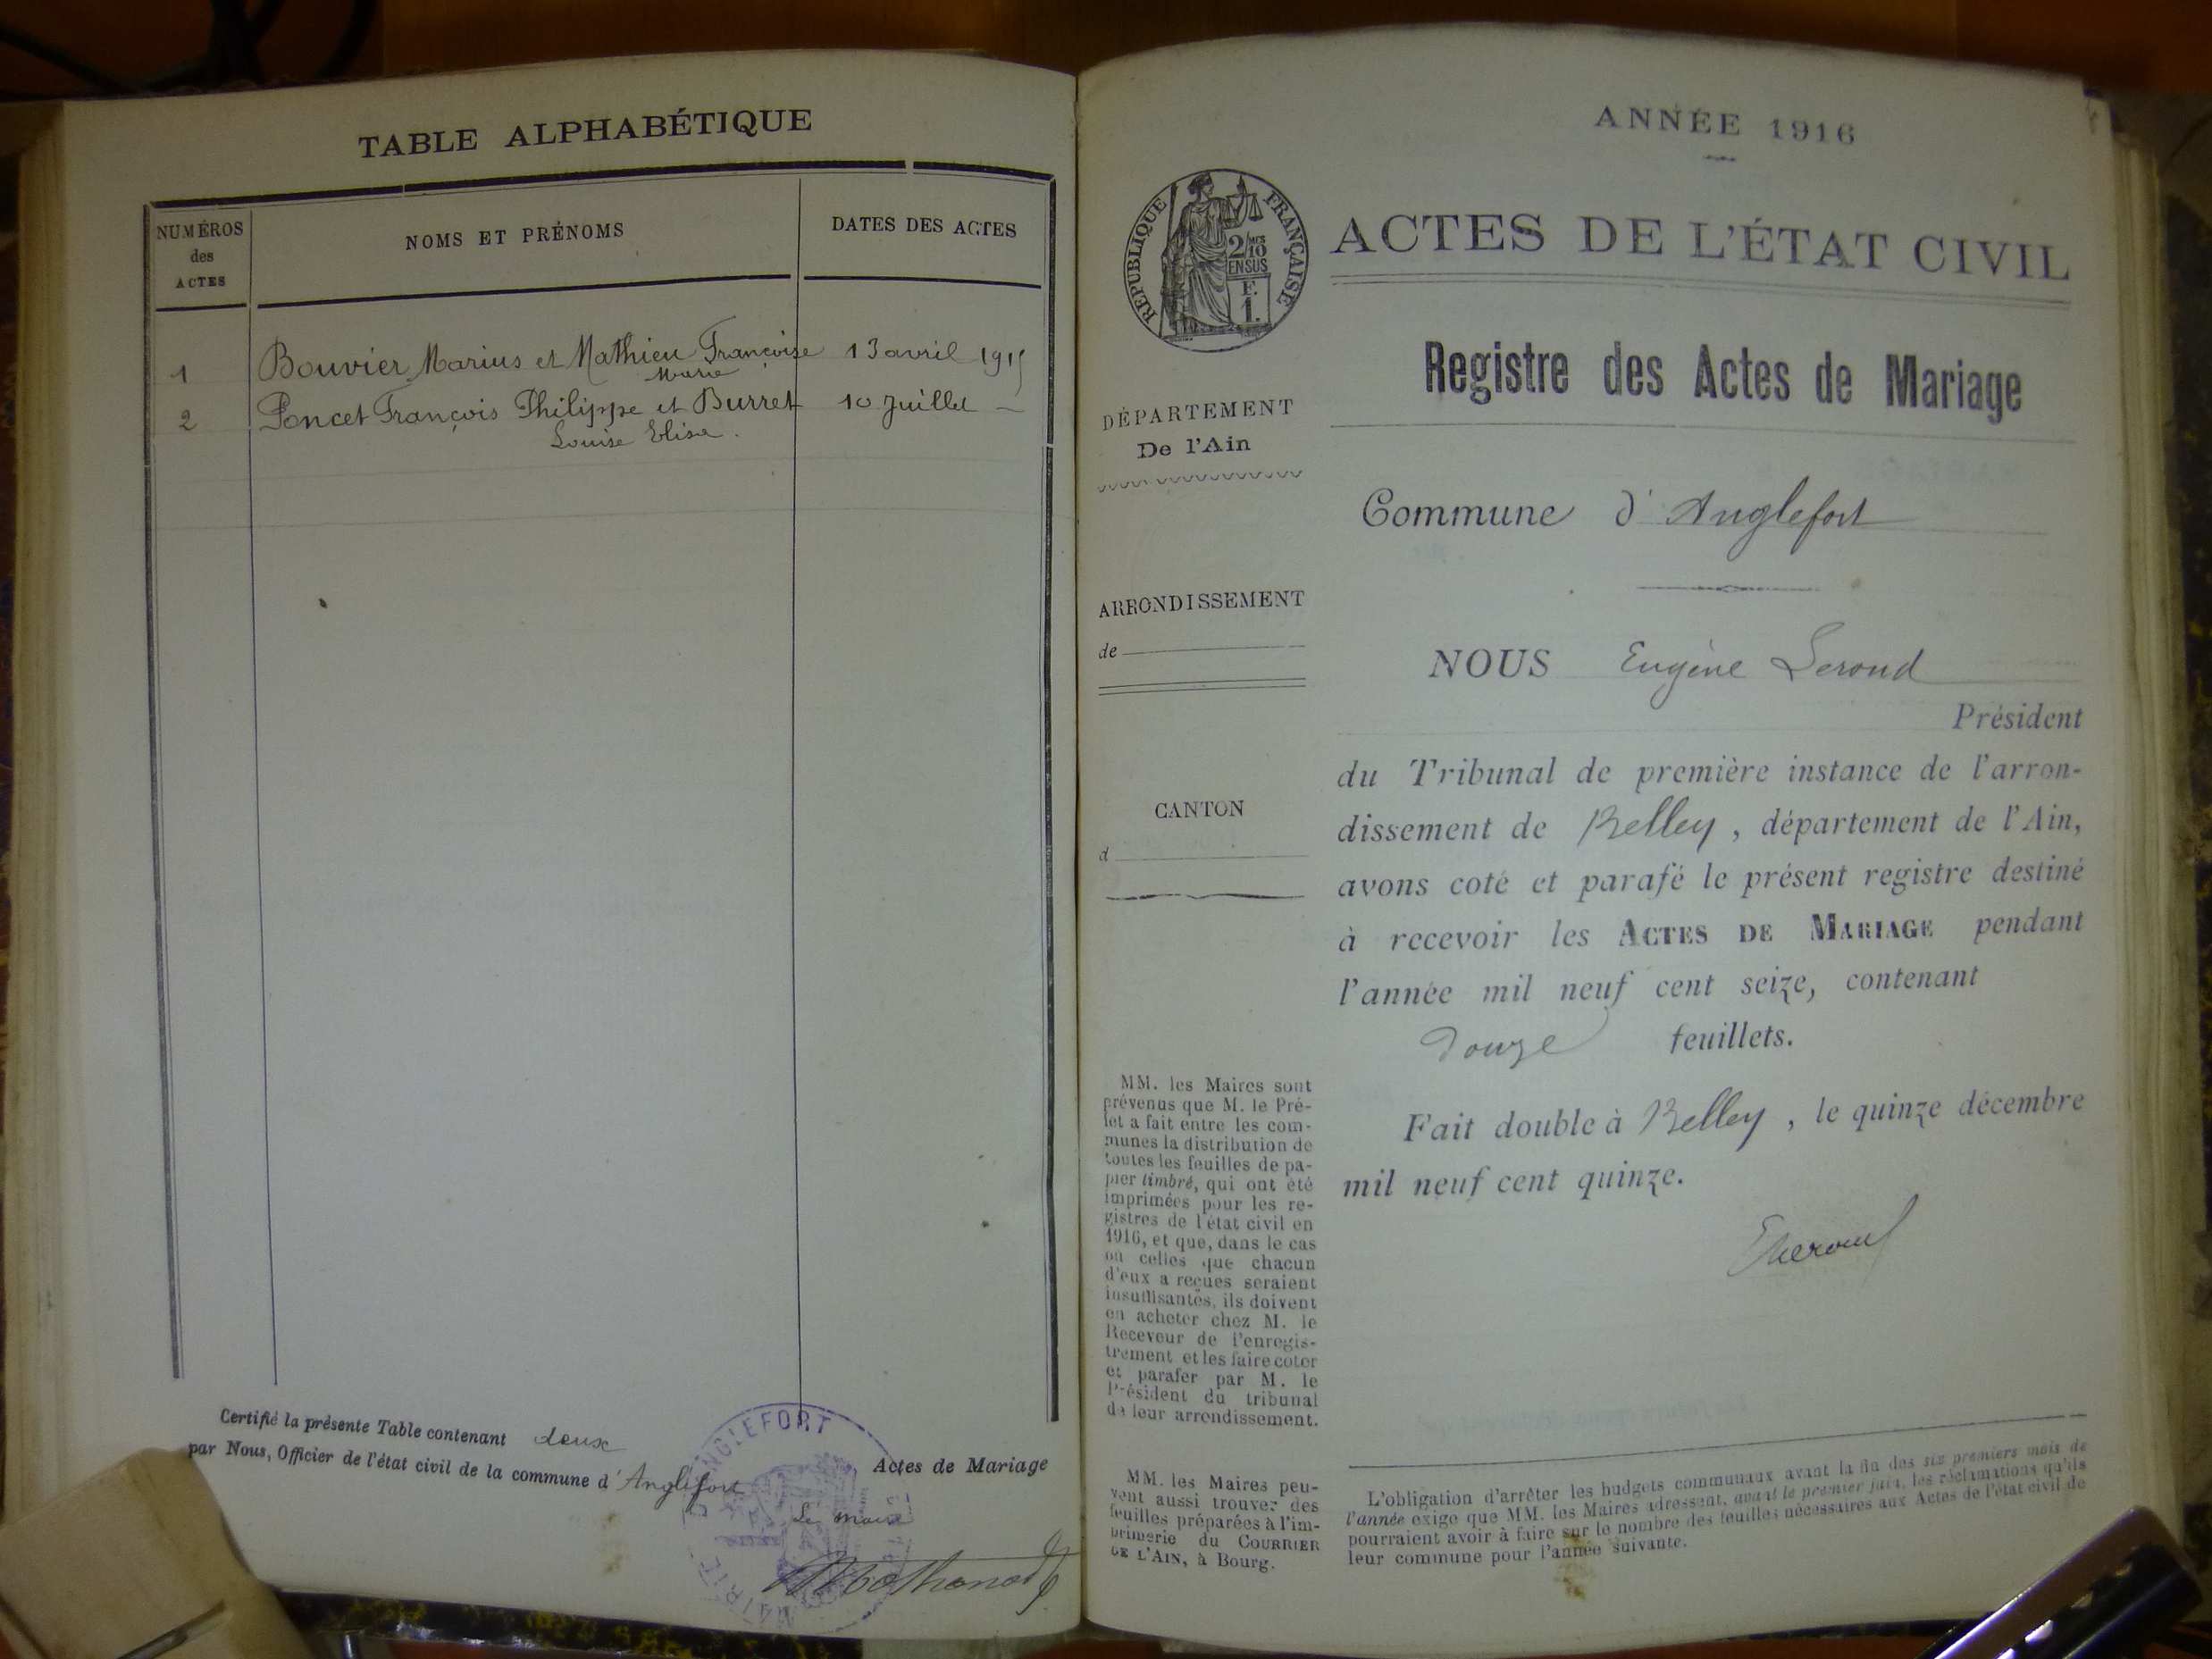 TABLE ALPHABÉTIQUE
NUMÉROS
des
ACTES
NOMS ET PRÉNOMS
DATES DES ACTES
1 Bouvier Marius et Mathieu Françoise 13 avril 1915
Marie
2 Poncet François Philippe et Burret 10 Juillet —
Louise Elisa.
Certifié la présente Table contenant deux Actes de Mariage
par Nous, Officier de l'état civil de la commune d'Anglefort
Le Maire
D'ANGLEFORT
MAIRIE
ANNÉE 1916
RÉPUBLIQUE FRANÇAISE
2/10 MES
EN SUS
F.
1.
ACTES DE L'ÉTAT CIVIL
Registre des Actes de Mariage
DÉPARTEMENT
De l'Ain
Commune d'Anglefort
ARRONDISSEMENT
de
CANTON
d
NOUS Eugène Leroud
Président
du Tribunal de première instance de l'arron-
dissement de Belley, département de l'Ain,
avons coté et parafé le présent registre destiné
à recevoir les ACTES DE MARIAGE pendant
l'année mil neuf cent seize, contenant
Douze feuillets.
Fait double à Belley, le quinze décembre
mil neuf cent quinze.
MM. les Maires sont
prévenus que M. le Pré-
fet a fait entre les com-
munes la distribution de
toutes les feuilles de pa-
pier timbré, qui ont été
imprimées pour les re-
gistres de l'état civil en
1916, et que, dans le cas
où celles que chacun
d'eux a reçues seraient
insuffisantes, ils doivent
en acheter chez M. le
Receveur de l'enregis-
trement et les faire coter
et parafer par M. le
Président du tribunal
de leur arrondissement.
MM. les Maires peu-
vent aussi trouver des
feuilles préparées à l'im-
primerie du COURRIER
DE L'AIN, à Bourg.
L'obligation d'arrêter les budgets communaux avant la fin des six premiers mois de
l'année exige que MM. les Maires adressent, avant le premier juin, les réclamations qu'ils
pourraient avoir à faire sur le nombre des feuilles nécessaires aux Actes de l'état civil de
leur commune pour l'année suivante.